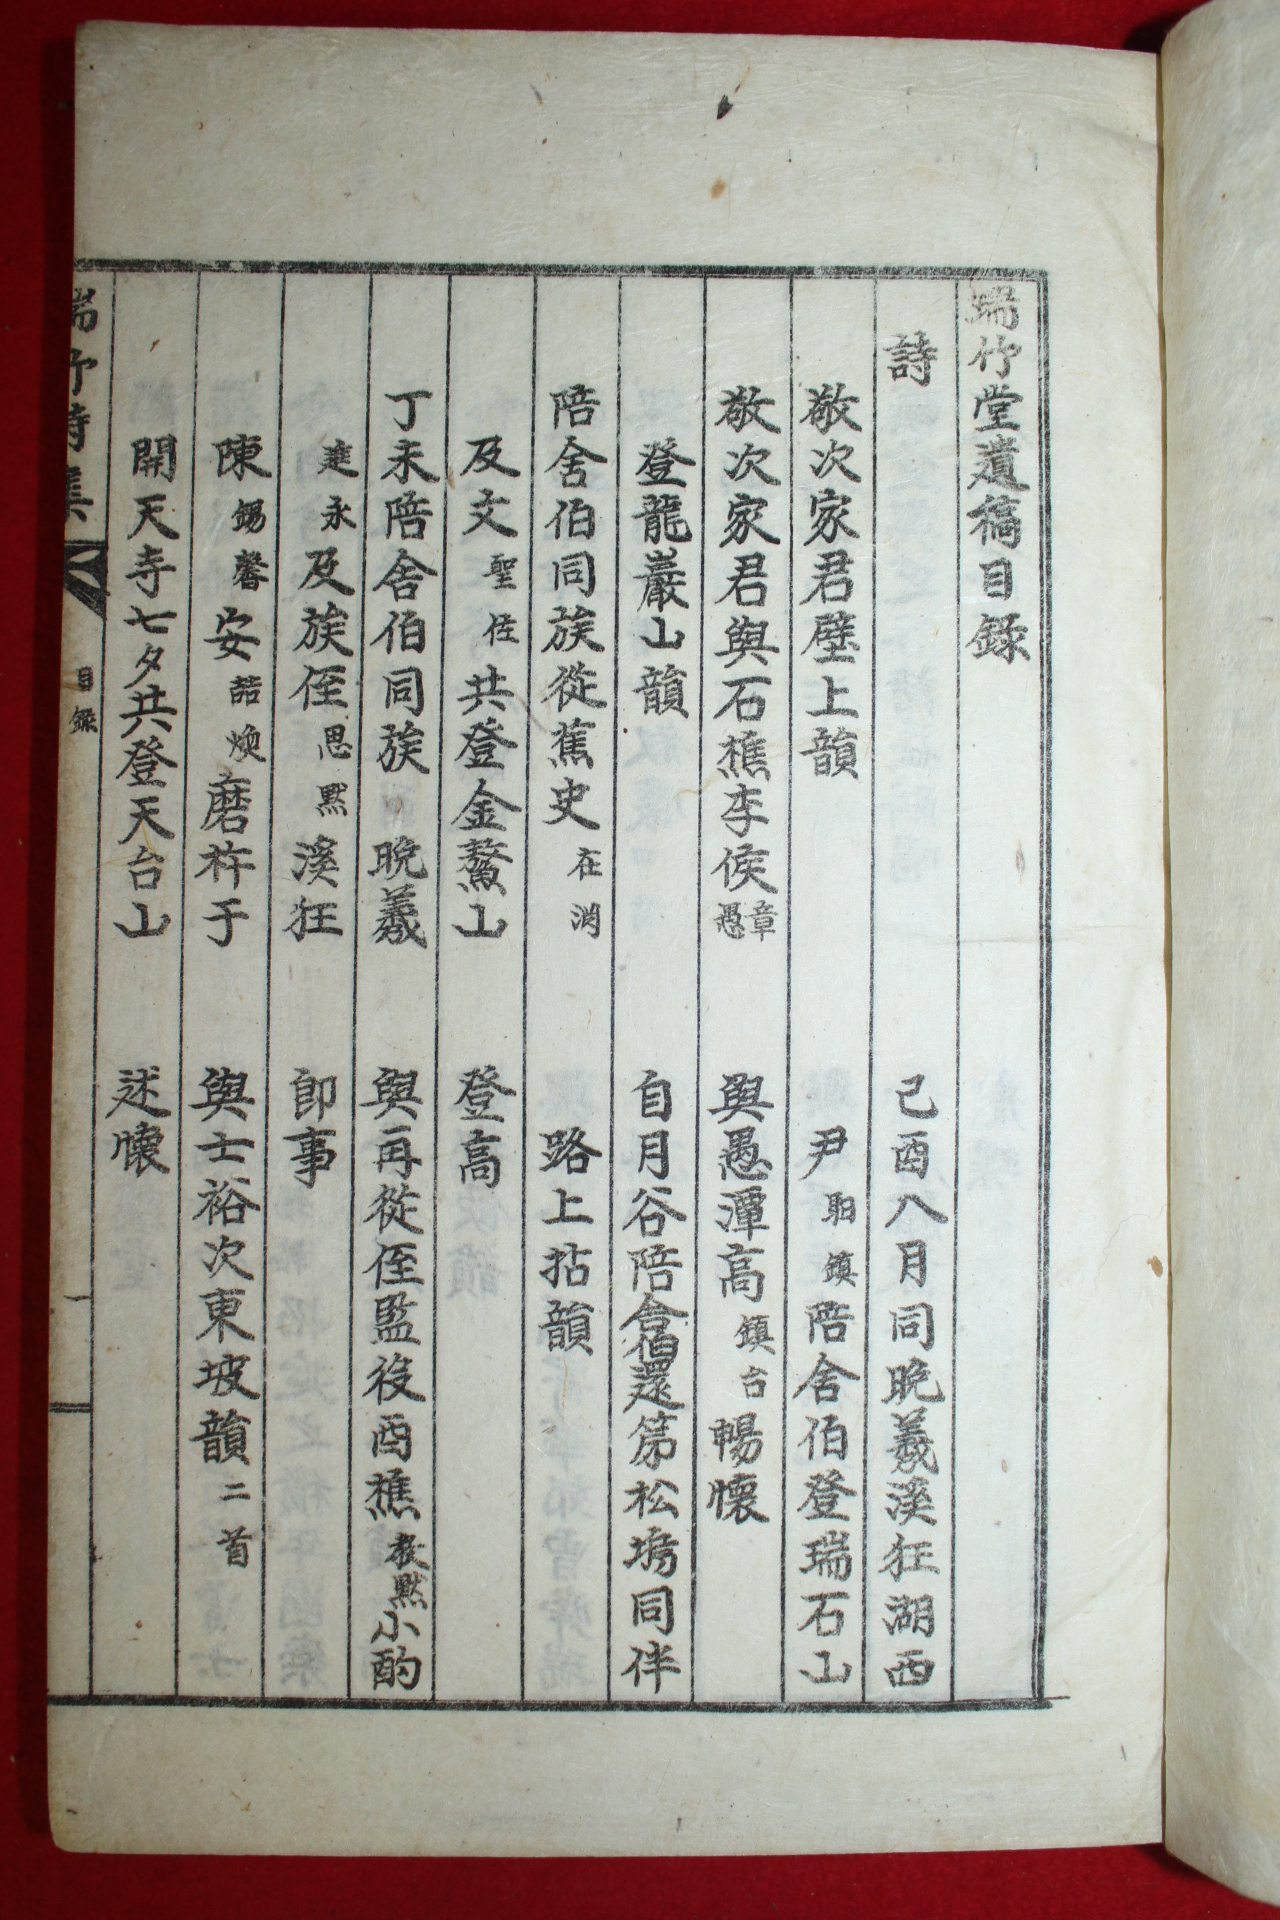 瑞竹堂遺稿目錄
詩　己酉八月同晩羲溪狂湖西
敬次家君壁上韻　尹聖鎮陪舍伯登瑞石山
敬次家君與石樵李侯章愚　與愚潭高鎮台暢懷
登龍巖山韻　自月谷陪舍伯還第松塢同伴
陪舍伯同族從蕉史在湖　路上拈韻
及文聖佐共登金鰲山　登高
丁未陪舍伯同族　晩羲　與再從侄監役酉樵教默小酌
永及族侄思默溪狂　卽事
陳錫馨安喆煥磨杵于　與士裕次東坡韻二首
開天寺七夕共登天台山　述懷
瑞竹詩集　目錄　一